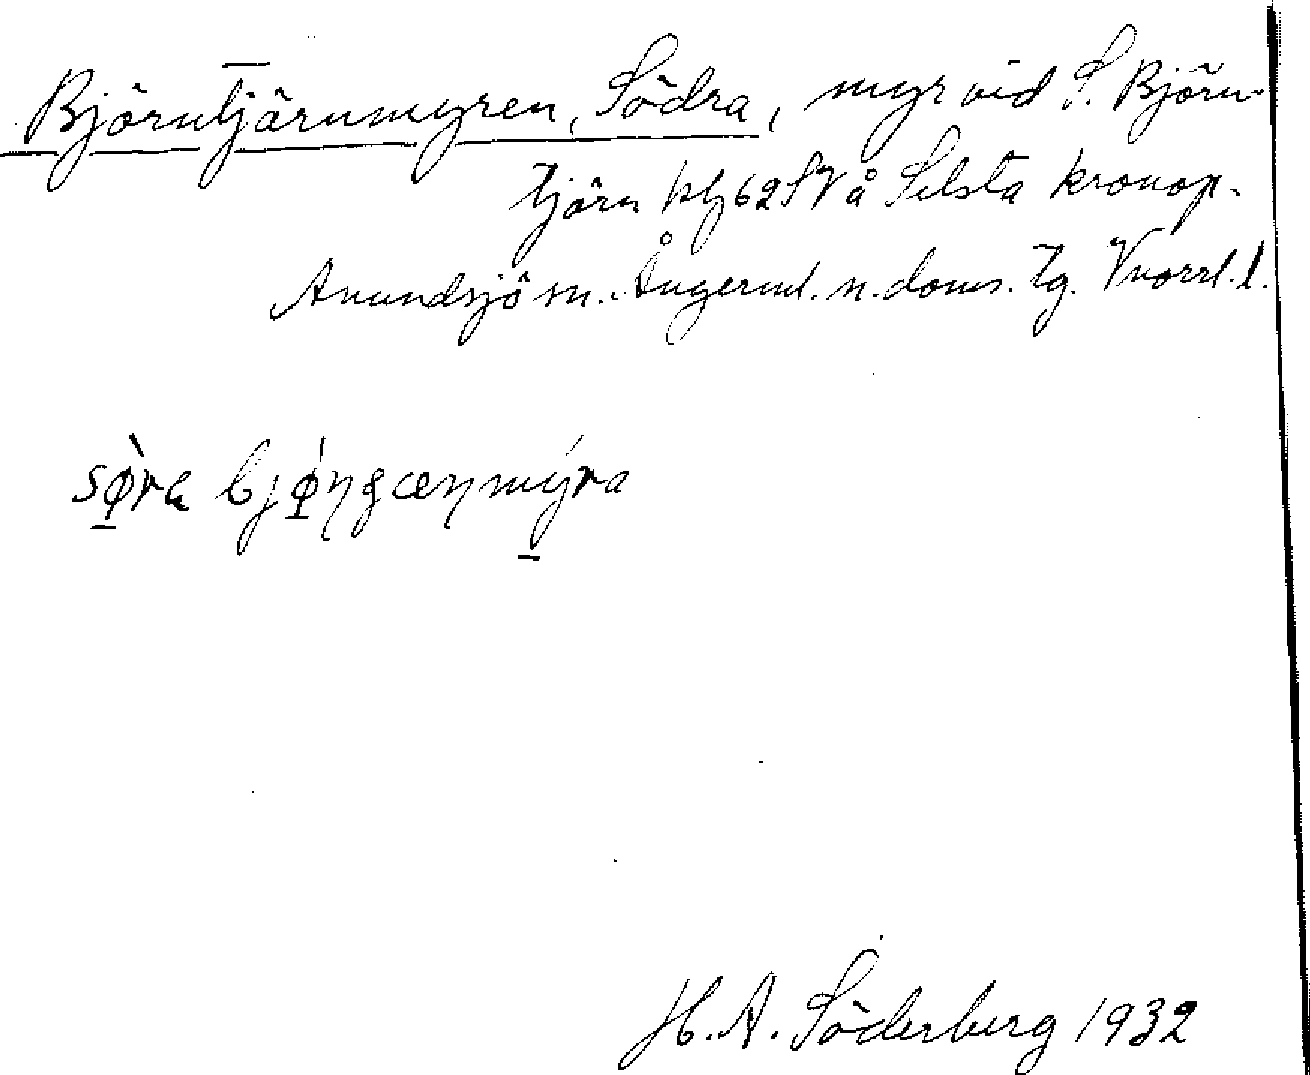 Björntjärnmyren, Södra, myr vid S. Björn-
tjärn kbl 62 SV å Selsta kronop.
Anundsjö sn. Ångerml. n. doms. Tg. Vnorrl. l.
sø̀ra bjǿŋgæɳmýra
H. A. Söderberg 1932